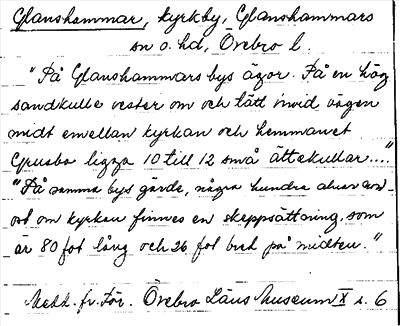 Glanshammar, kyrkby, Glanshammars
sn o. hd, Örebro l.
"På Glanshammars bys ägor. På en hög
sandkulle vester om och tätt invid vägen
midt emellan kyrkan och hemmanet
Grusbo ligga 10 till 12 små ättekullar...."
"På samma bys gärde, några hundra alnar nord-
ost om kyrkan finnes en skeppsättning, som
är 80 fot lång och 26 fot bred på midten."
Medd. fr. För. Örebro Läns Museum X s. 6